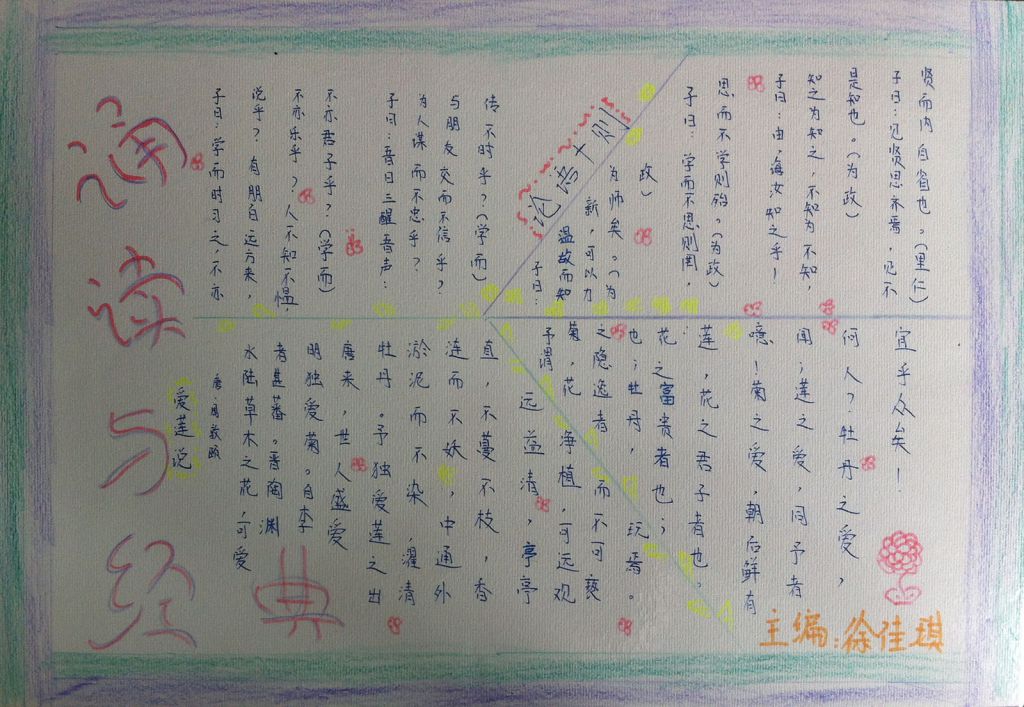 诵读与经典
论语十则
子曰：学而时习之，不亦
说乎？有朋自远方来，
不亦乐乎？人不知不愠，
不亦君子乎？（学而）
子曰：吾日三醒吾声：
为人谋而不忠乎？
与朋友交而不信乎？
传不时乎？（学而）
子曰：
温故而知
新，可以力
为师矣。（为
政）
子曰：学而不思则罔，
思而不学则殆。（为政）
子曰：由，海汝知之乎！
知之为知之，不知为不知，
是知也。（为政）
子曰：见贤思齐焉，见不
贤而内自省也。（里仁）
爱莲说
唐：周敦颐
水陆草木之花，可爱
者甚蕃。晋陶渊
明独爱菊。自李
唐来，世人盛爱
牡丹。予独爱莲之出
淤泥而不染，濯清
涟而不妖，中通外
直，不蔓不枝，香
远益清，亭亭
净植，可远观
而不可亵
玩焉。
予谓
菊，花
之隐逸者
也；牡丹，
花之富贵者也；
莲，花之君子者也。
噫！菊之爱，朝后鲜有
闻；莲之爱，同予者
何人？牡丹之爱，
宜乎众矣！
主编：徐佳琪